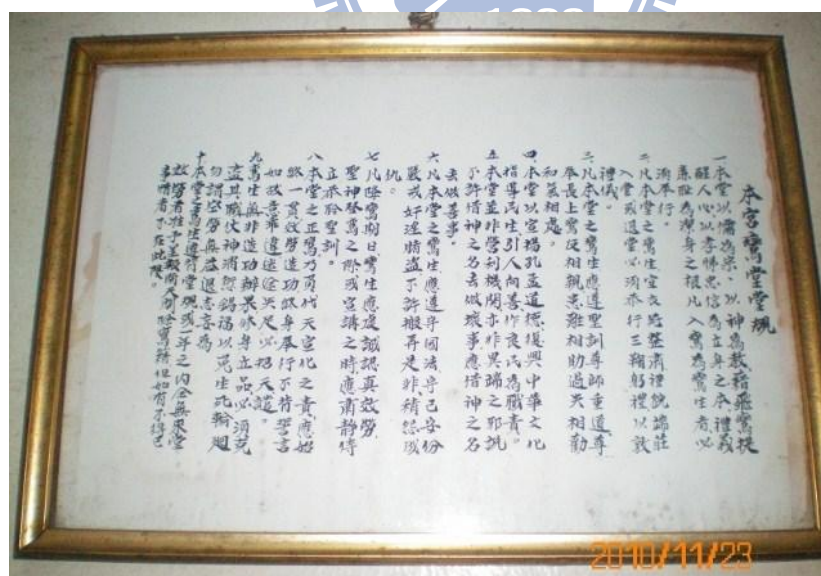 本宮鸞堂堂規
一本堂以儒為宗、以神為教藉飛鸞提
醒人心以孝悌忠信為立身之本禮義
廉恥為潔身之根凡入鸞為鸞生者必
須奉行。
二凡本堂之鸞生宜衣跨整肅禮貌端莊
入堂或退堂必須奉行三鞠躬禮以敦
禮儀。
三凡本堂之鸞生應遵聖訓尊師重道尊
奉長上鸞友相親患難相助過失相勸
和氣相處。
四本堂以宣揚孔孟道德復興中華文化
指導民生引人向善作良民為職責。
五本堂並非營利機關亦非異端之邪說
不許借神之名去做壞事應借神之名
去做善事。
六凡本堂之鸞生應遵守國法守己安份
嚴戒奸淫賭盜不許搬弄是非積怨成
仇。
七凡降鸞期日鸞生應虔誠認真效勞
聖神登鸞之際或宣講之時應肅靜待
立恭聆聖訓。
八本堂之正鸞乃負代天宣化之責應始
終一貫效勞造功終身奉行不背誓言
如故意罪違迷途失足必招天譴。
九鸞生無非造功辦果修身立品必須克
盡其職伏神消愆錫福以免生死輪迴
勿謂空勞無益退志妄為
十本堂之鸞生遵行堂規或一年之內全無來堂
效勞者
事情者不在此限。
2010/11/23